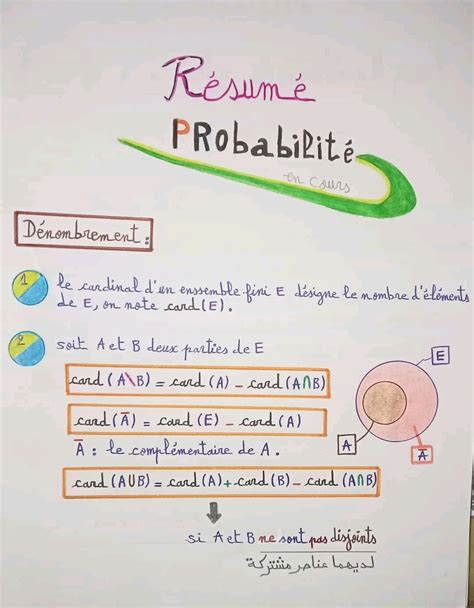 Résumé
PRobabilité
en cours
Dénombrement :
1 le cardinal d'un enssemble fini E désigne le nombre d'éléments
de E, on note card(E).
2 soit A et B deux parties de E
card (A\B) = card (A) - card (A∩B)
card (Ā) = card (E) - card (A)
Ā : le complémentaire de A.
card (A∪B) = card (A) + card (B) - card (A∩B)
E
A
Ā
si A et B ne sont pas disjoints
لديهما عناصر مشتركة